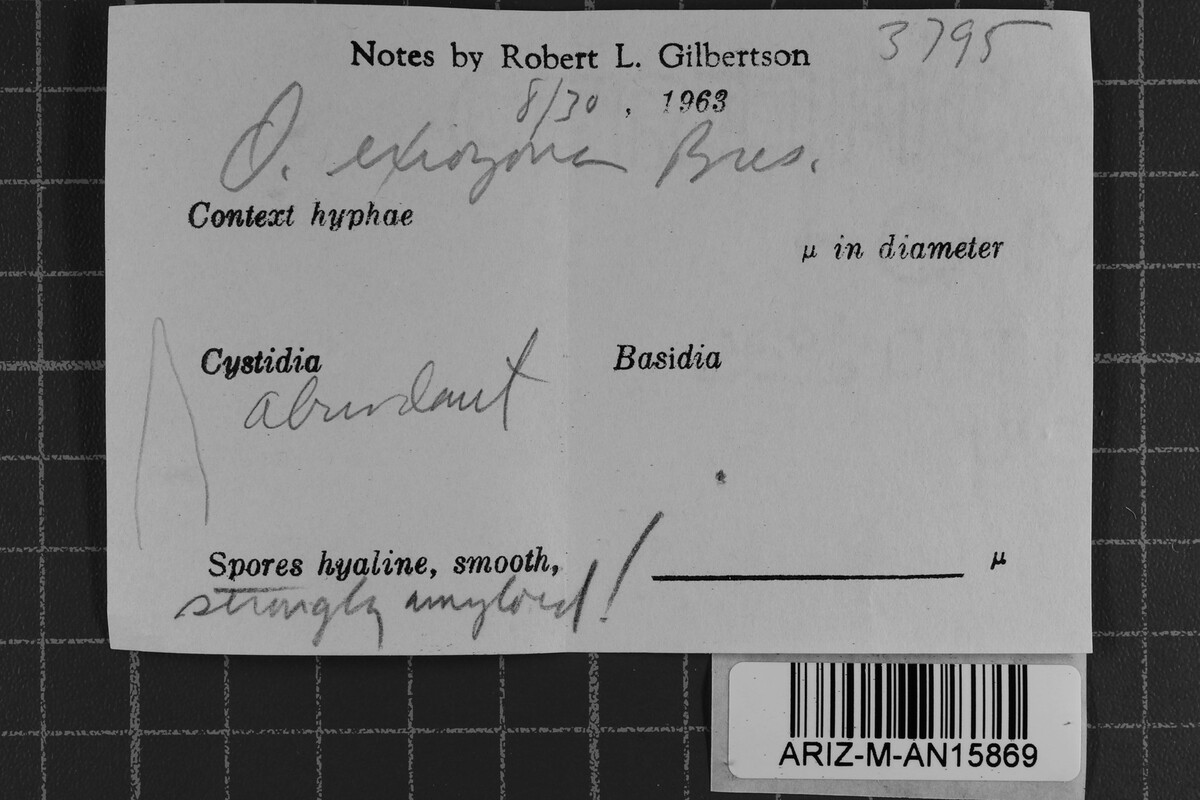 Notes by Robert L. Gilbertson 3795
8/30, 1963
O. Bres.
Context hyphae
μ in diameter
Cystidia Basidia
abundant
Spores hyaline, smooth, μ
strongly amyloid!
ARIZ-M-AN15869